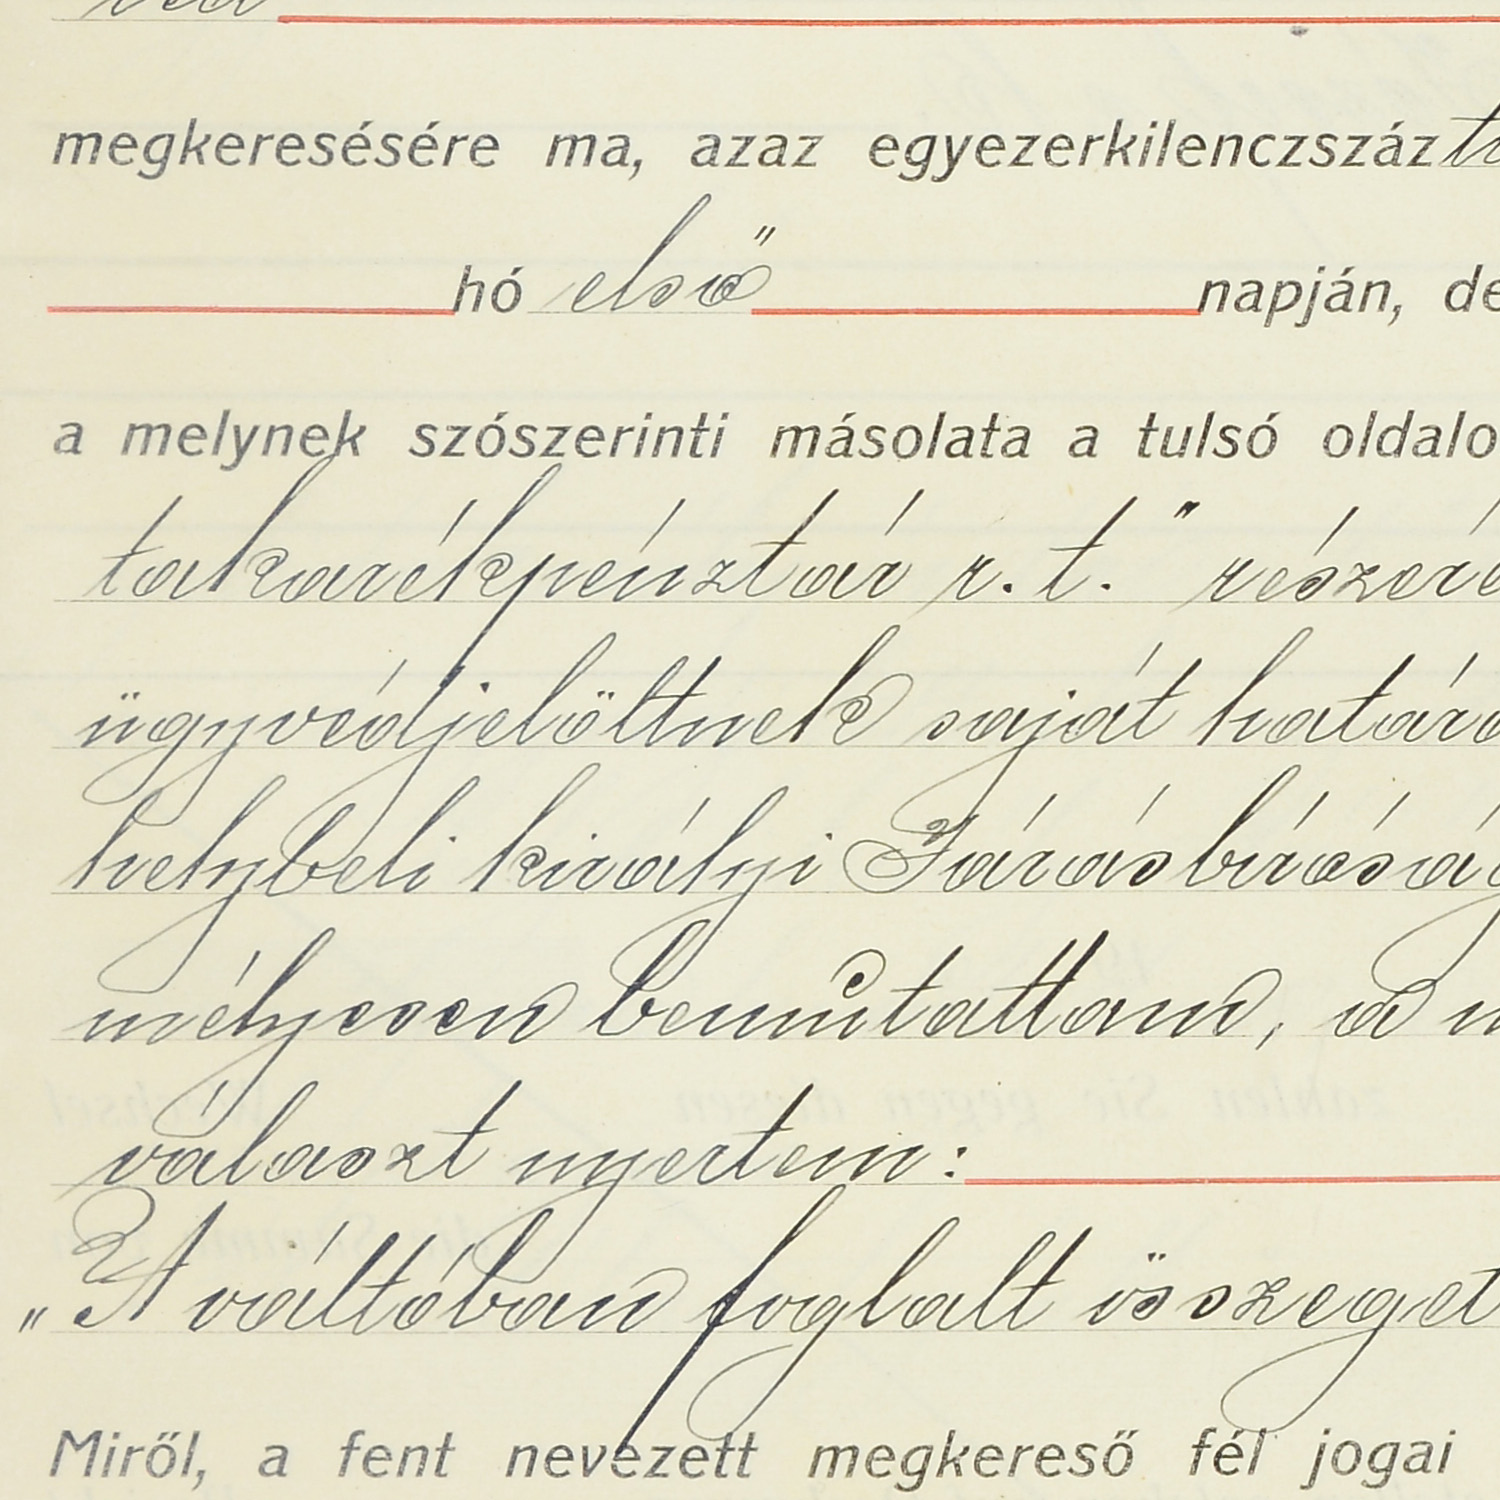 megkeresésére ma, azaz egyezerkilenczszáz
hó első napján, de
a melynek szószerinti másolata a tulsó oldalo
takarékpénztár r. t." részére
ügyvédjelöltnek saját határo
helybeli királyi Járásbíróság
mélyesen bemutattam, a m
választ nyertem:
„A váltóban foglalt összeget
Miről, a fent nevezett megkereső fél jogai